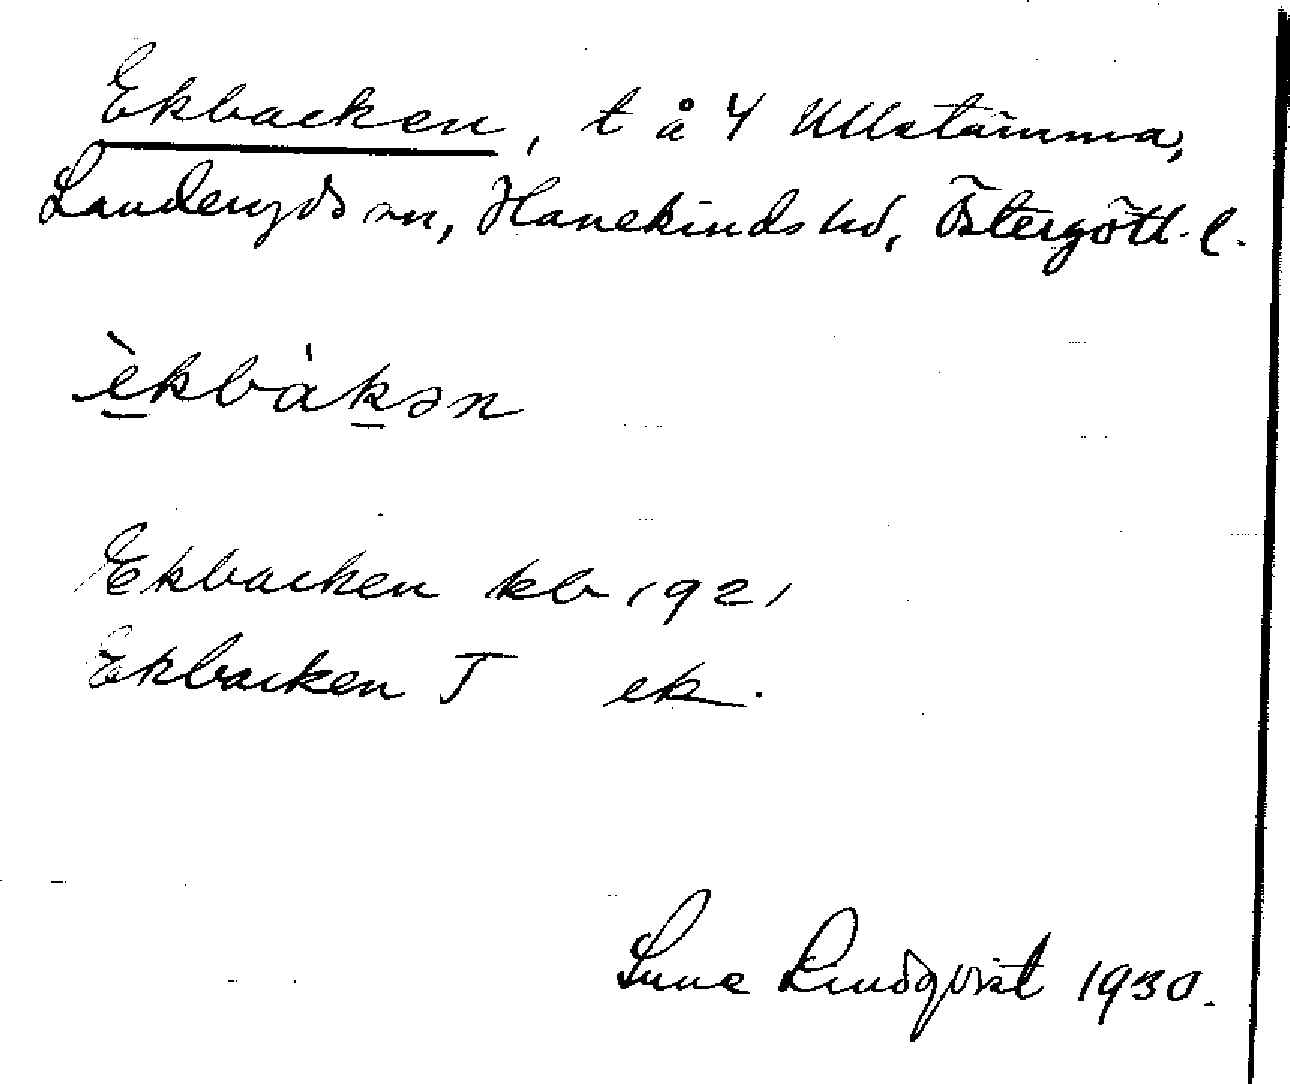 Ekbacken, t å 4 Ullstämma,
Landeryds sn, Hanekinds hd, Östergötl. l.
èkbàkən
Ekbacken kb 1921
Ekbacken T ek.
Sune Lindqvist 1930.